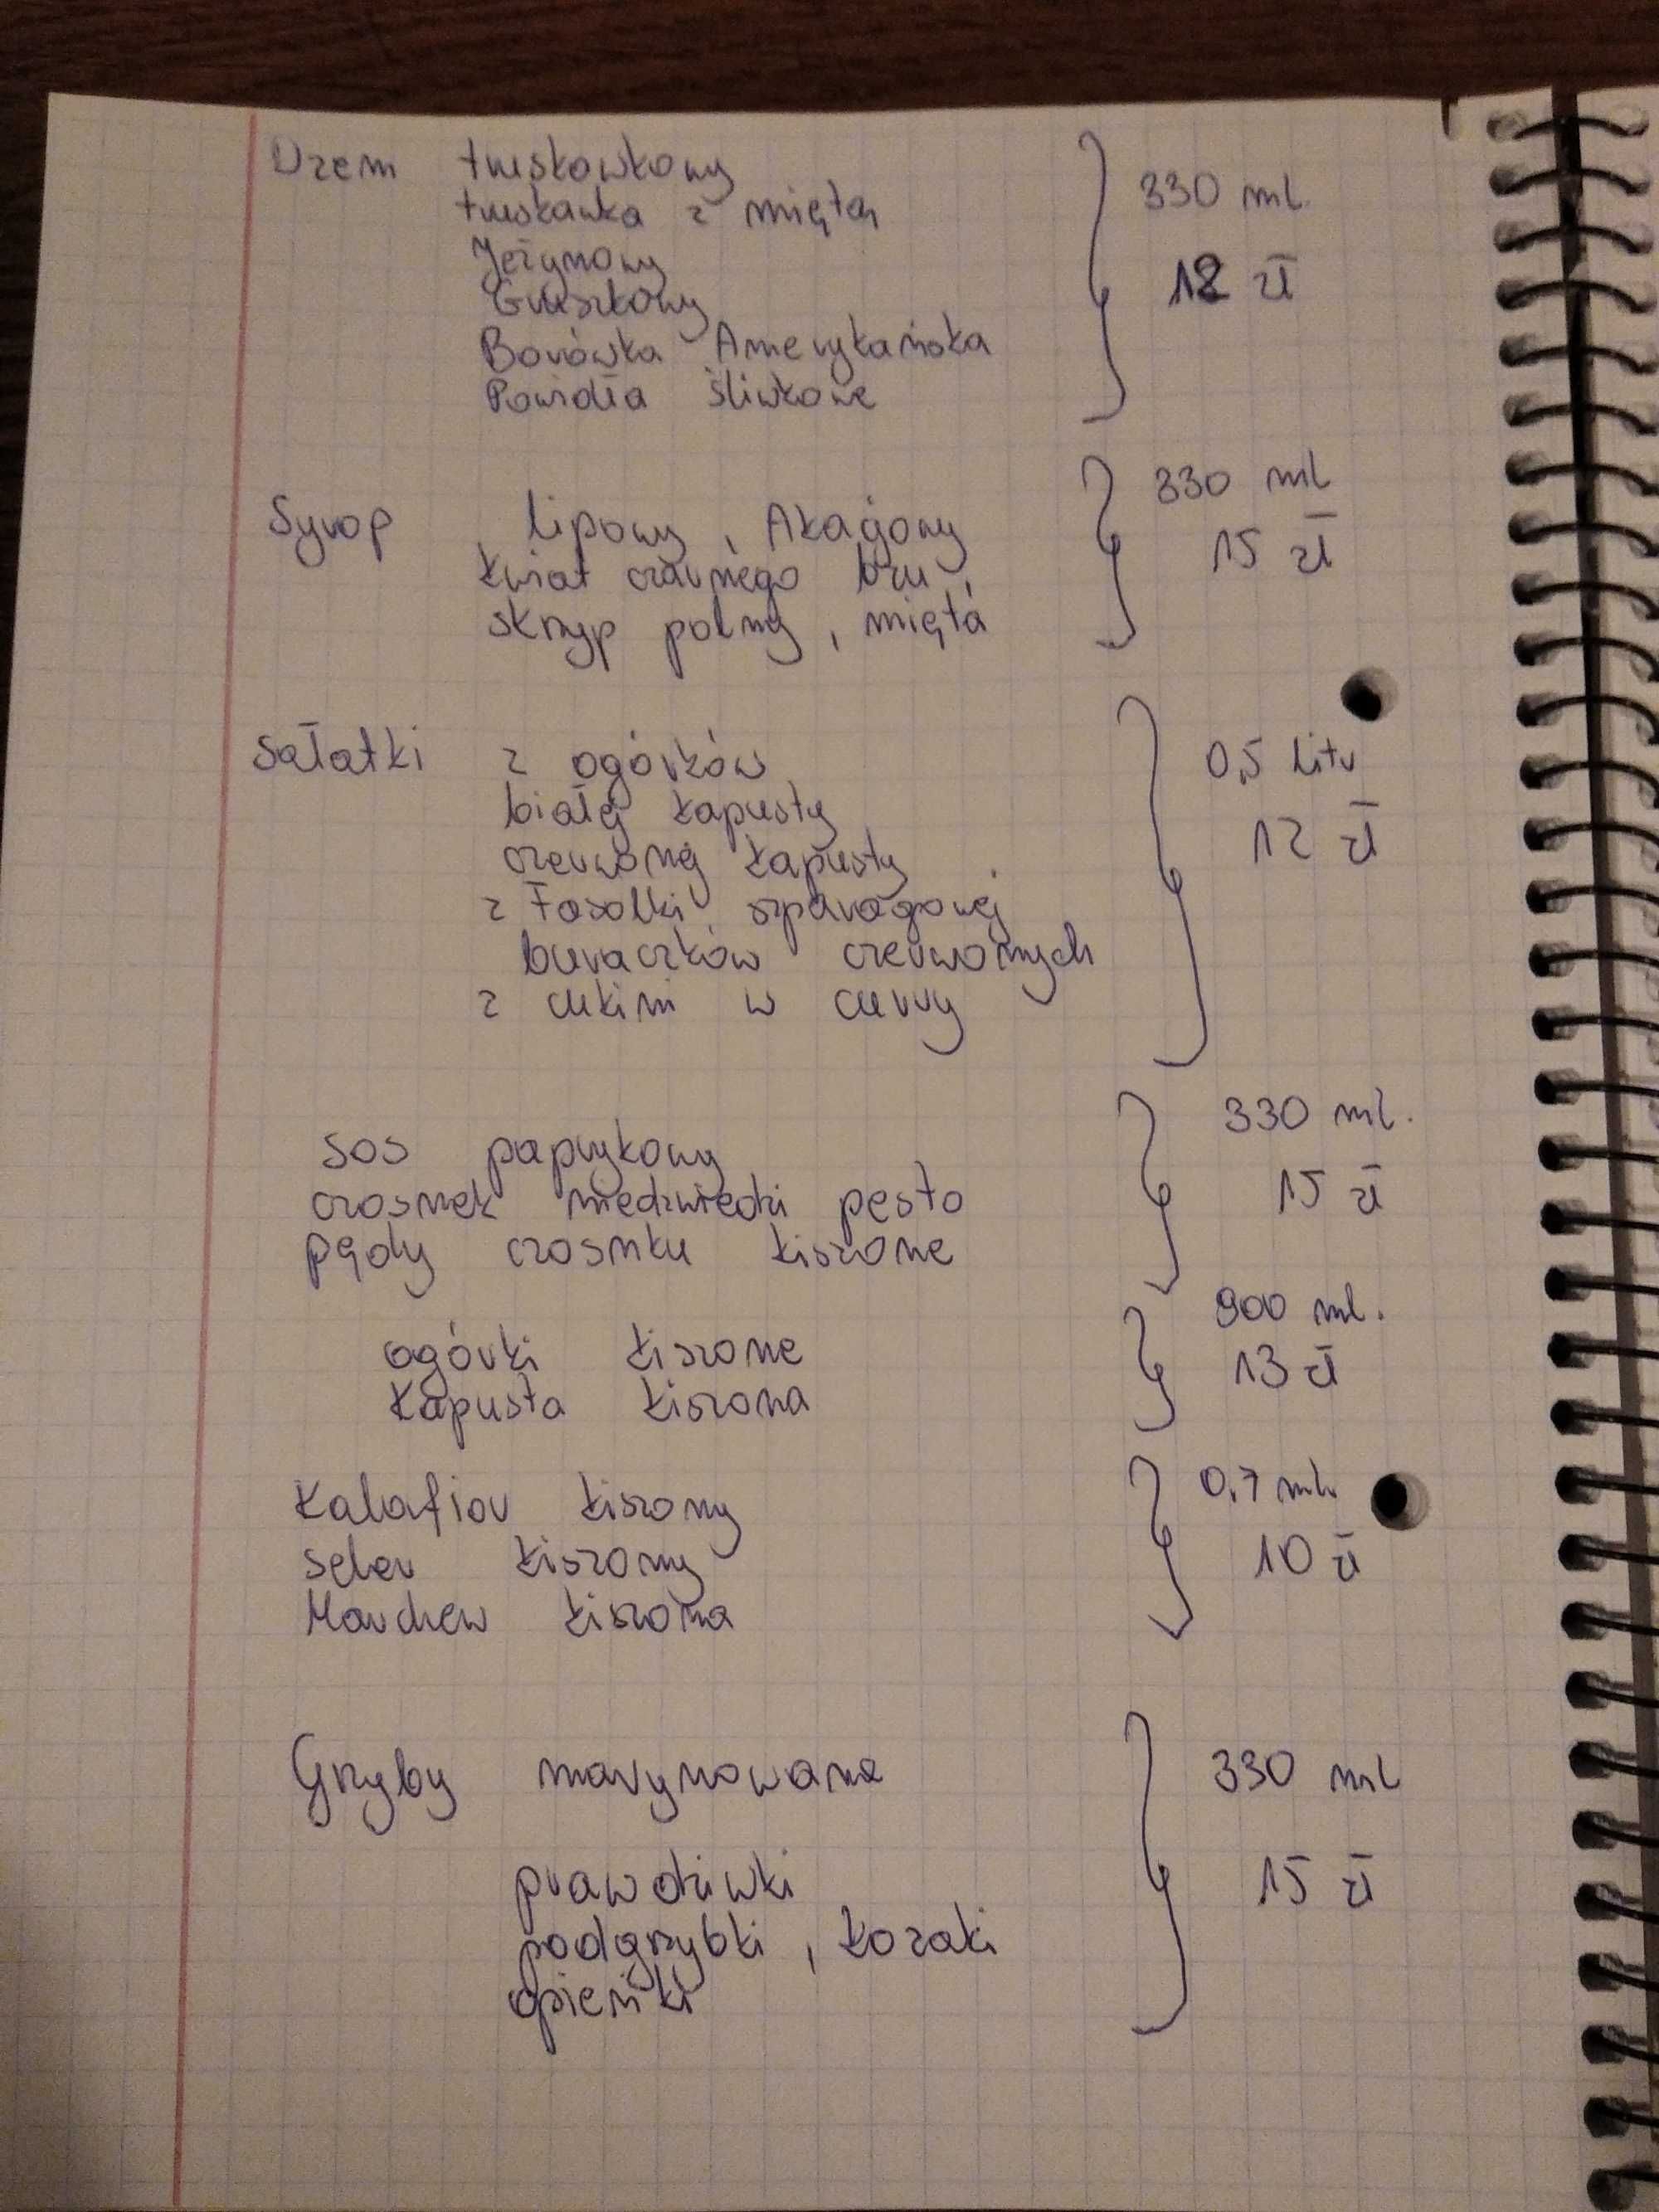 Dżem truskawkowy
truskawka z miętą
Jeżynowy
Gruszkowy
Borówka Amerykańska
Powidła śliwkowe
330 ml.
12 zł
Syrop lipowy, Akacjowy
kwiat czarnego bzu,
skrzyp polny, mięta
330 ml
15 zł
Sałatki z ogórków
białej kapusty
czerwonej kapusty
z Fasolki szparagowej
buraczków czerwonych
z cukini w curry
0,5 litr
12 zł
SOS paprykowy
czosnek niedzwiedzi pesto
pędy czosnku kiszone
330 ml.
15 zł
ogórki kiszone
kapusta kiszona
900 ml.
13 zł
Kalafior kiszony
seler kiszony
Marchew kiszona
0,7 ml
10 zł
Grzyby marynowane
prawdziwki
podgrzybki, kozaki
opieńki
330 ml
15 zł